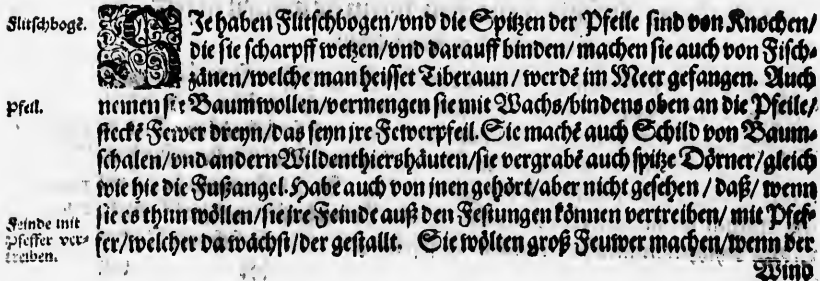 Flitschbogē.
SJe haben Flitschbogen/vnd die Spitzen der Pfeile sind von Knochen/
die sie scharpff wetzen/vnd darauff binden/ machen sie auch von Fisch-
zänen/welche man heisset Tiberaun / werdē im Meer gefangen. Auch
Pfeil.
nemen sie Baumwollen/vermengen sie mit Wachs/bindens oben an die Pfeile/
steckē Fewer dreyn/das seyn jre Fewerpfeil. Sie machē auch Schild von Baum-
schalen/vnd andern Wildenthiershäuten/sie vergrabē auch spitze Dörner/gleich
wie hie die Fußangel. Habe auch von jnen gehört/aber nicht gesehen / daß/ wenn
Feinde mit
Pfeffer ver-
treiben.
sie es thun wöllen/sie jre Feinde auß den Festungen können vertreiben/ mit Pfef-
fer/welcher da wächst/der gestallt. Sie wölten groß Feuwer machen/wenn der
Wind